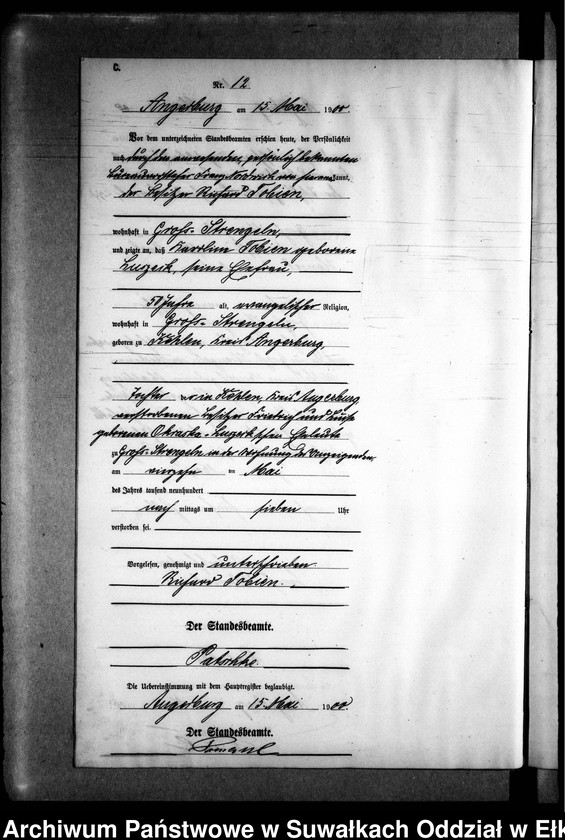 C.
Nr. 12
Angerburg am 15. Mai 1900.
Vor dem unterzeichneten Standesbeamten erschien heute, der Persönlichkeit
nach durch den anwesenden, persönlich bekannten
kannt,
der Besitzer Richard Tobien,
wohnhaft in Groß-Strengeln,
und zeigte an, daß Karoline Tobien geborene
Luzerk, seine Ehefrau,
50 Jahre alt, evangelischer Religion,
wohnhaft in Groß-Strengeln,
geboren zu Kehlen, Kreis Angerburg
Tochter der in Kehlen, Kreis Angerburg
verstorbenen Besitzer Friedrich und Luise
geborenen Luzerk'schen Eheleute
zu Groß-Strengeln in der Wohnung des Anzeigenden,
am vierzehn ten Mai
des Jahres tausend neunhundert
nach mittags um sieben Uhr
verstorben sei.
Vorgelesen, genehmigt und unterschrieben
Richard Tobien.
Der Standesbeamte.
Die Uebereinstimmung mit dem Hauptregister beglaubigt.
Angerburg am 15. Mai 1900
Der Standesbeamte.
Archiwum Państwowe w Suwałkach Oddział w Ełk